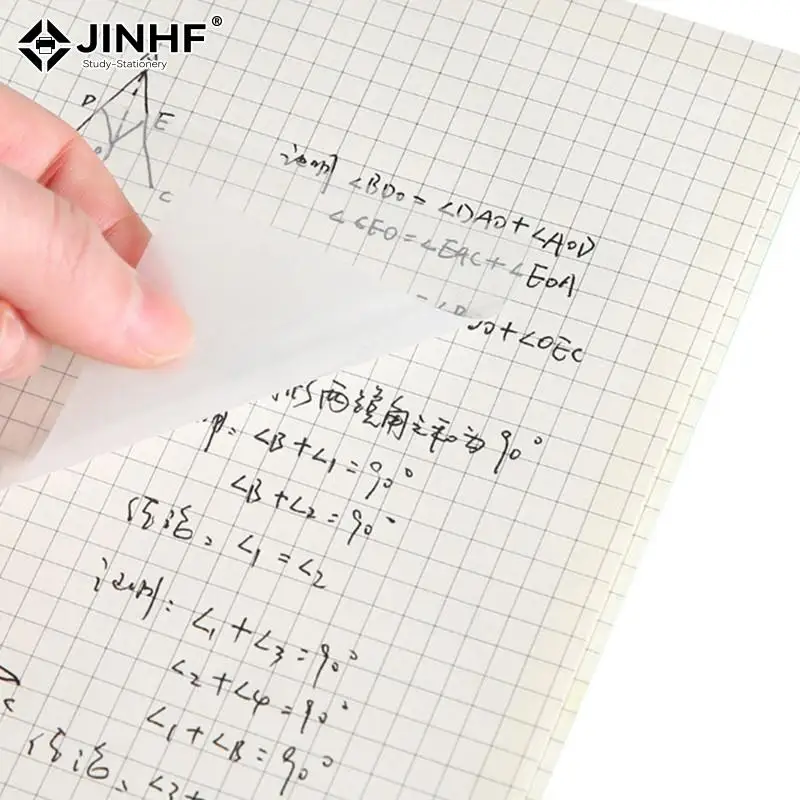 JINHF®
Study-Stationery
D
E
C
证明 ∠BDO = ∠DAO + ∠AOD
∠CEO = ∠EAC + ∠EOA
+ ∠OEC
两锐角之和为 90°
∠B + ∠1 = 90°
∠B + ∠2 = 90°
结论、∠1 = ∠2
证明: ∠1 + ∠3 = 90°
∠2 + ∠4 = 90°
∠1 + ∠B = 90°
C
结论、∠3 +